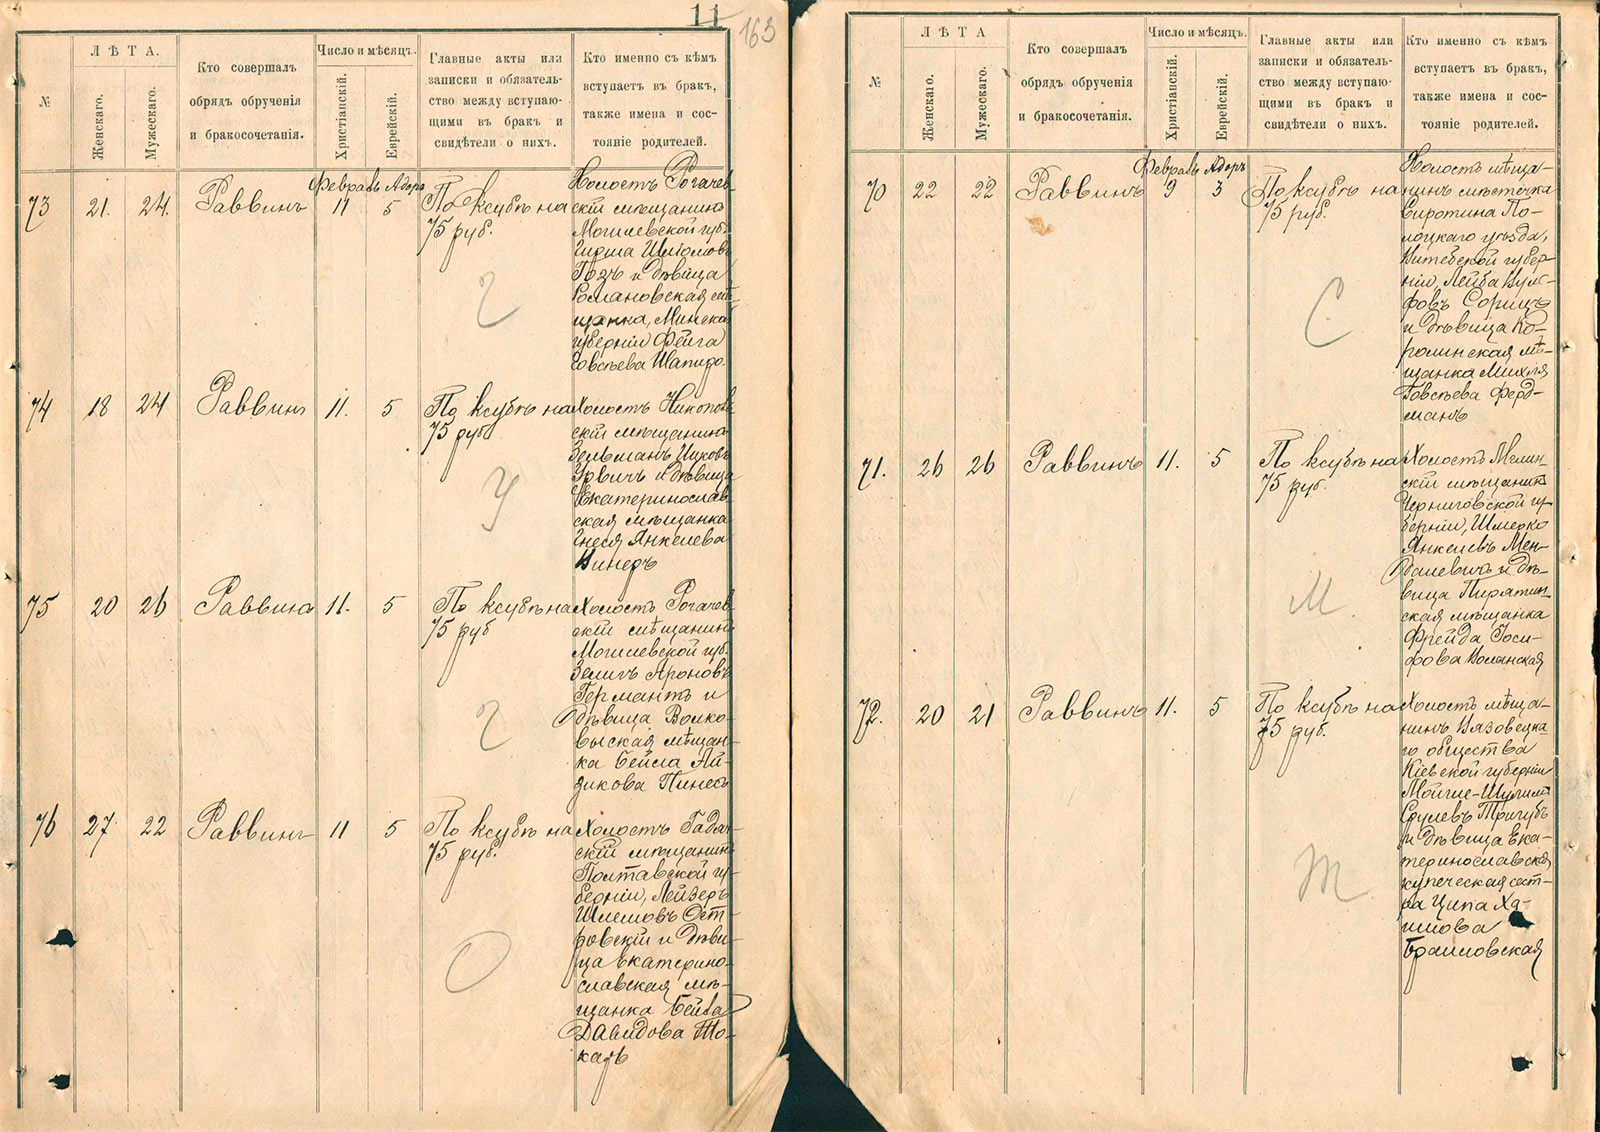 11
163
№
ЛѢТА.
Женскаго.
Мужескаго.
Кто совершалъ
обрядъ обрученія
и бракосочетанія.
Число и мѣсяцъ.
Христіанскій.
Еврейскій.
Главные акты или
записки и обязатель-
ство между вступаю-
щими въ бракъ и
свидѣтели о нихъ.
Кто именно съ кѣмъ
вступаетъ въ бракъ,
также имена и сос-
тояніе родителей.
Февраль Адоръ
73 21. 24. Раввинъ 11 5
По ксубѣ на
75 руб.
Г
Холостъ Рогачев-
скій мѣщанинъ
Могилевской губ.
Гирша Шліомовъ
Гозъ и дѣвица
Романовская мѣ-
щанка, Минской
губерніи Фейга
Евсѣева Шапиро.
74 18 24 Раввинъ 11. 5
По ксубѣ на
75 руб
У
Холостъ Никопол-
скій мѣщанинъ
Зельманъ Ицковъ
Урвичъ и дѣвица
Екатеринослав-
ская мѣщанка
Гнеся Янкелева
Винеръ
75 20 26 Раввинъ 11. 5
По ксубѣ на
75 руб
Г
Холостъ Рогачев-
скій мѣщанинъ
Могилевской губ.
Зеликъ Ароновъ
Германтъ и
дѣвица Волко-
выская мѣщан-
ка Бейла Ай-
зикова Пинесъ
76 27 22 Раввинъ 11 5
По ксубѣ на
75 руб.
О
Холостъ Гадяч-
скій мѣщанинъ
Полтавской гу-
берніи, Лейзеръ
Шлемовъ Ост-
ровскій и дѣви-
ца Екатерино-
славская мѣ-
щанка Бейла
Давидова То-
каръ
№
ЛѢТА
Женскаго.
Мужескаго.
Кто совершалъ
обрядъ обрученія
и бракосочетанія.
Число и мѣсяцъ.
Христіанскій.
Еврейскій.
Главные акты или
записки и обязатель-
ство между вступаю-
щими въ бракъ и
свидѣтели о нихъ.
Кто именно съ кѣмъ
вступаетъ въ бракъ,
также имена и сос-
тояніе родителей.
Февраль Адоръ
70 22 22 Раввинъ 9 3
По ксубѣ на
75 руб.
С
Холостъ мѣща-
нинъ мѣстечка
Сиротина По-
лоцкаго уѣзда,
Витебской губер-
ніи, Лейба Вуль-
фовъ Сорицъ
и дѣвица Ко-
ролинская мѣ-
щанка Михля
Говсѣева Ферд-
манъ
71. 26 26 Раввинъ 11. 5
По ксубѣ на
75 руб.
М
Холостъ Мглин-
скій мѣщанинъ
Черниговской гу-
берніи, Шмерко
Янкелевъ Мен-
далевичъ и дѣ-
вица Пирятин-
ская мѣщанка
Фрейда Іоси-
фова Волынская
72. 20 21 Раввинъ 11. 5
По ксубѣ на
75 руб.
Т
Холостъ мѣща-
нинъ Вязовецка-
го общества
Кіевской губерніи
Мойше-Шулимъ
Срулевъ Тригубъ
и дѣвица Ека-
теринославская
купеческая сест-
ра Ципа Ха-
имова
Браиловская